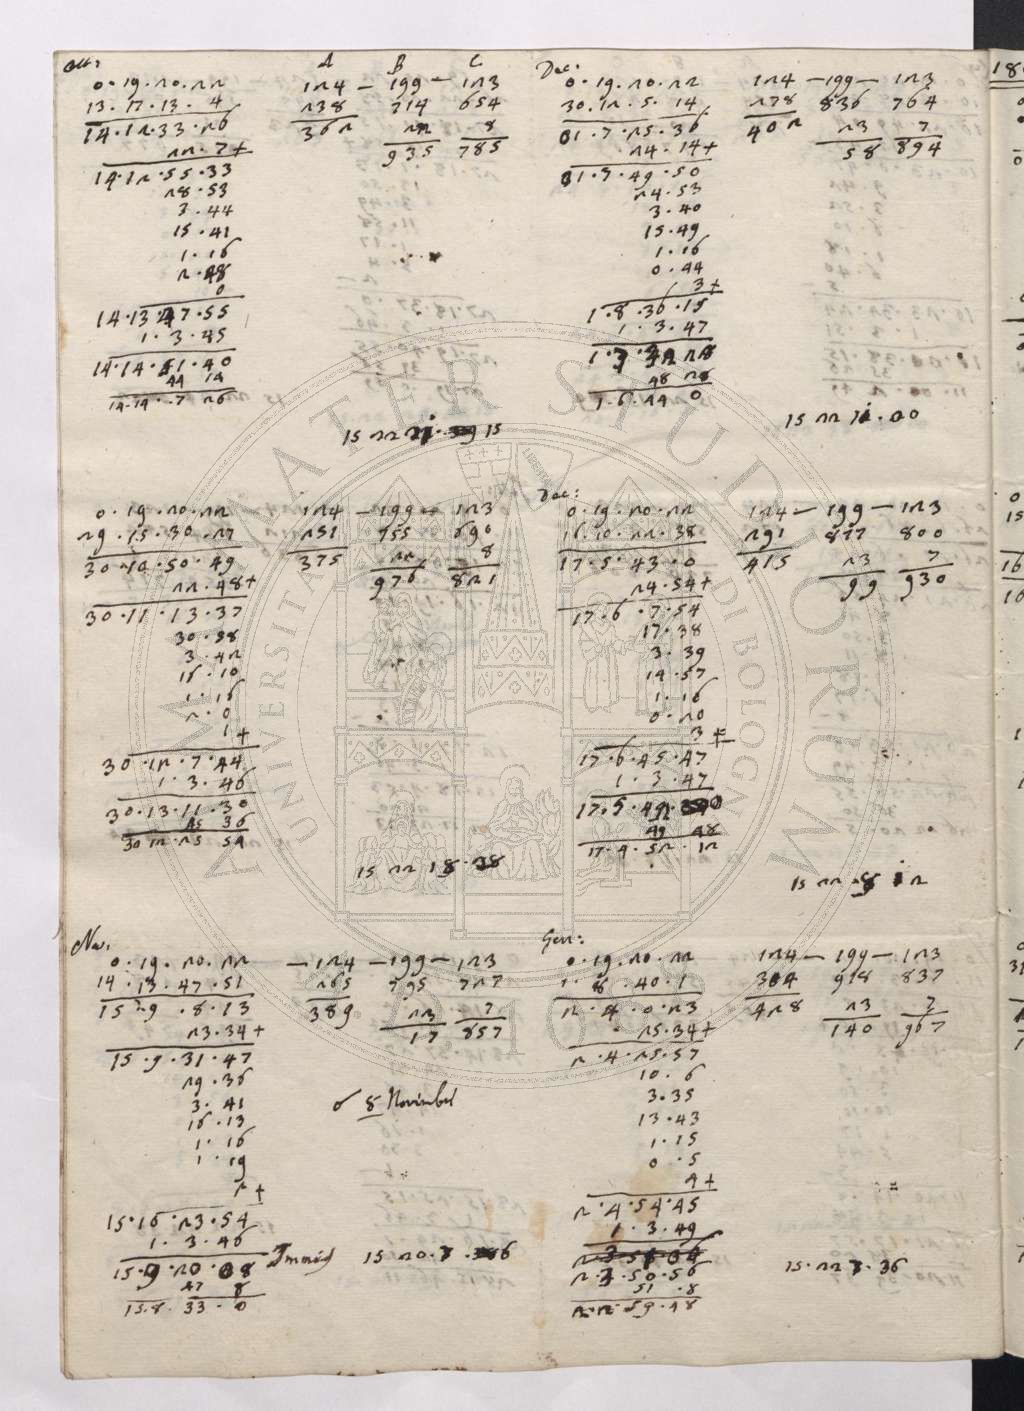 Ott:
A B C
0.19.20.22 124 – 199 – 123
13.17.13.4 238 714 654
14.12.33.26 362 22 8
22.7+ 935 785
14.12.55.33
28.53
3.44
15.41
1.16
2.48
0
14.13.47.55
1.3.45
14.14.51.40
44 14
14.14.7 26
15 22 15
0.19.20.22 124 – 199 – 123
29.15.30.27 251 755 690
30.10.50.49 375 22 8
22.48+ 976 821
30.11.13.37
30.58
3.42
16.10
1.16
2.0
1+
30.12.7.44
1.3.46
30.13.11.30
45 36
30 12.25 54
15 22 18.38
Nov:
0.19.20.22 – 124 – 199 – 123
14.13.47.51 265 795 727
15 9.8.13 389 23 7
23.34+ 17 857
15.9.31.47
29.36
3.41
16.13
1.16
1.19
2+
15.10.23.54
1.3.46
15.9.20.08
47 8
15.8.33.0
8 November
15 20.7.6
Dec:
0.19.20.22 124 – 199 – 123
30.12.5.14 278 836 764
01.7.25.36 402 23 7
24.14+ 58 894
01.7.49.50
24.53
3.40
15.49
1.16
0.44
3+
1.8.36.15
1.3.47
1.7.32 28
48 28
1.6.44 0
15 22 11.00
Dec:
0.19.20.22 124 – 199 – 123
16.10.22.38 291 877 800
17.5.43.0 415 23 7
24.54+ 99 930
17.6.7.54
17.38
3.39
14.57
1.16
0.20
3+
17.6.45.47
1.3.47
17.5.42.0
49 48
17.4.52.12
15 22 8 12
Gen:
0.19.20.22 124 – 199 – 123
1.8.40.1 304 918 837
2.4.0.23 428 23 7
25.34+ 140 967
2.4.25.57
10.6
3.35
13.43
1.15
0.5
4+
2.4.54.45
1.3.49
2.3.50.56
51.8
2.2.59.48
15.22 7.36
ALMA MATER STUDIORUM